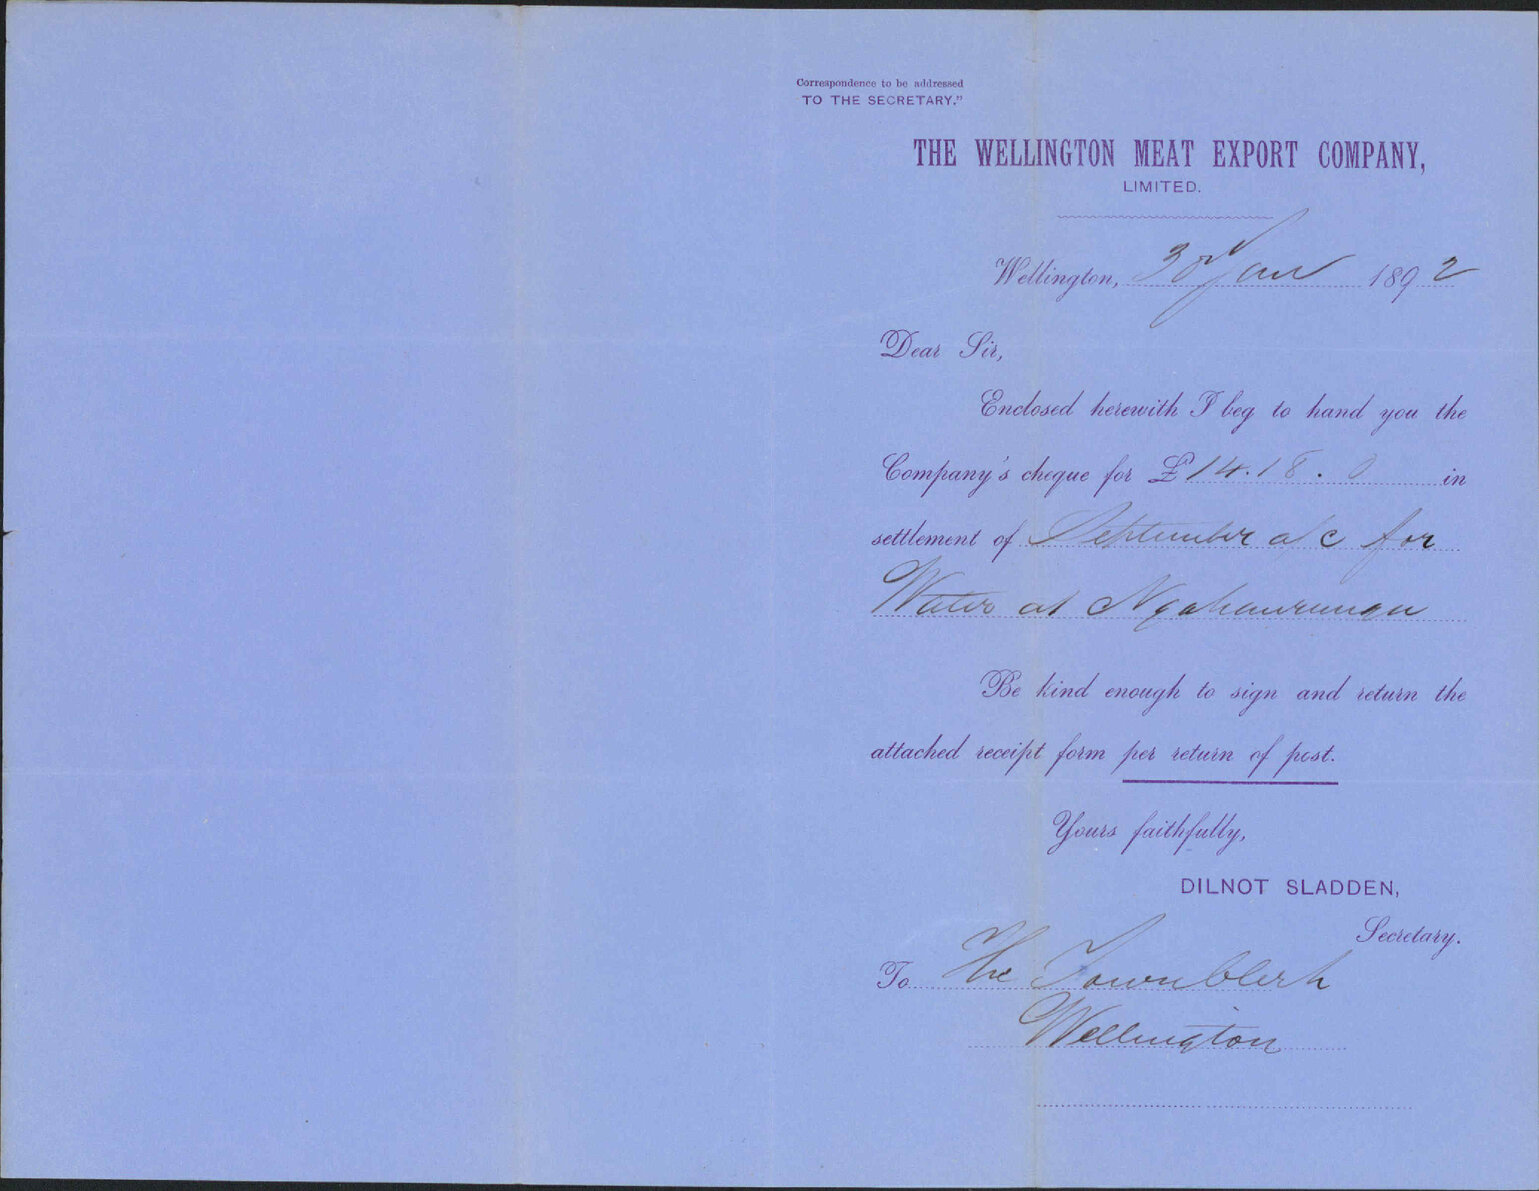 Correspondence to be addressed
TO THE SECRETARY."
THE WELLINGTON MEAT EXPORT COMPANY,
LIMITED.
Wellington, Jan 1892
Dear Sir,
Enclosed herewith I beg to hand you the
Company's cheque for £14.18.0 in
settlement of September a/c for
Water at Ngahauranga
Be kind enough to sign and return the
attached receipt form per return of post.
Yours faithfully,
DILNOT SLADDEN,
Secretary.
To The Town Clerk
Wellington